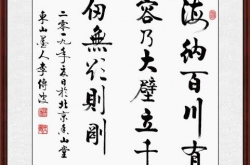 海納百川有
容乃大壁立千
仞無欲則剛
二〇一九年夏日於北京香山堂
東山墨人李傳波